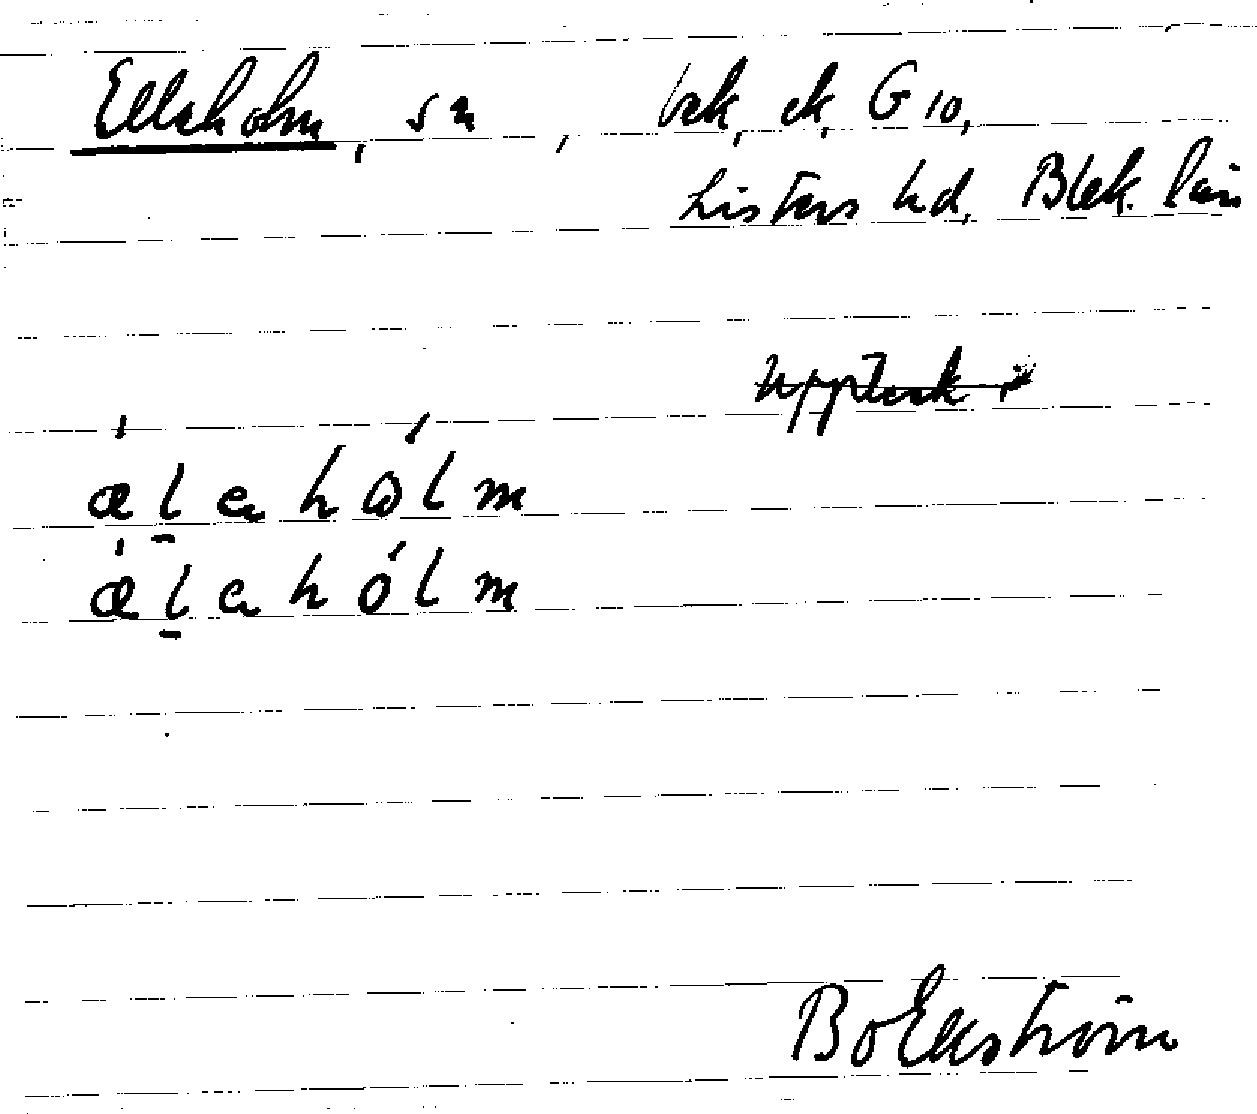 Elleholm, sn, bek, ek, G 10,
Listers hd, Blek. län
ælahòlm
ælahólm
Bo Ekström